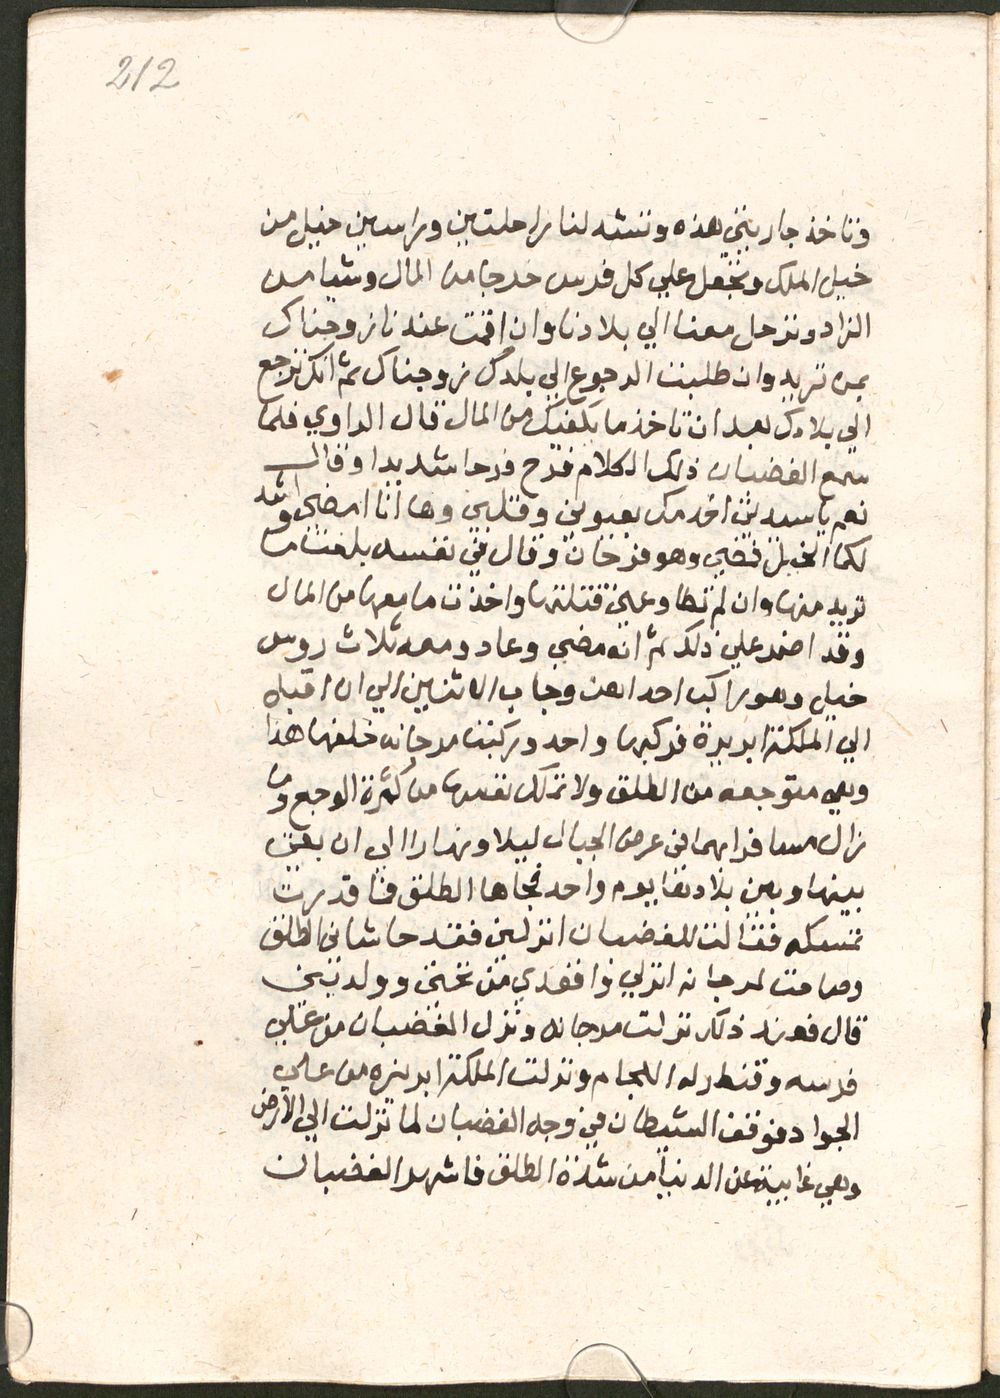 212
وناخذ جاريتي هذه وتشد لنا راحلتين وراسين خيل من
خيل الملك ونجعل علي كل فرس خرجا من المال وشيا من
الزاد وترحل معنا الي بلادنا وان اقمت عندنا زوجناك
بمن تريد وان طلبت الرجوع الي بلدك زوجناك ثم انك ترجع
الي بلادك بعد ان تاخذ ما يكفيك من المال قال الراوي فلما
سمع الغضبان ذلك الكلام فرح فرحا شديدا وقال
نعم يا ستي اخدمك بعيوني وقلبي وها انا امضي واشد
لكما الخيل فمضي وهو فرحان وقال في نفسه بلغت ما
تريد منها وان لم تطاوعني قتلتها واخذت ما معها من المال
وقد اضمر علي ذلك ثم انه مضي وعاد ومعه ثلاث روس
خيل وهو راكب احداهن وجاب الاثنين الي ان اقبل
الي الملكة ابريزة فركبها واحد وركبت مرجانه خلفها هذا
وهي متوجعه من الطلق ولا تملك نفسها من كثرة الوجع وما
زال مسافرا بهما في عرض الجبال ليلا ونهارا الي ان بقي
بينها وبين بلادها يوم واحد فجاها الطلق فما قدرت
تمسكه فقالت للغضبان انزلني فقد حاشاني الطلق
وصاحت لمرجانه انزلي واقعدي من تحتي وولديني
قال فعند ذلك نزلت مرجانه ونزل الغضبان من علي
فرسه وقنطر له اللجام ونزلت الملكة ابريزه من علي
الجواد فوقف الشيطان في وجه الغضبان لما نزلت الي الارض
وهي غايبة عن الدنيا من شدة الطلق فاشهر الغضبان